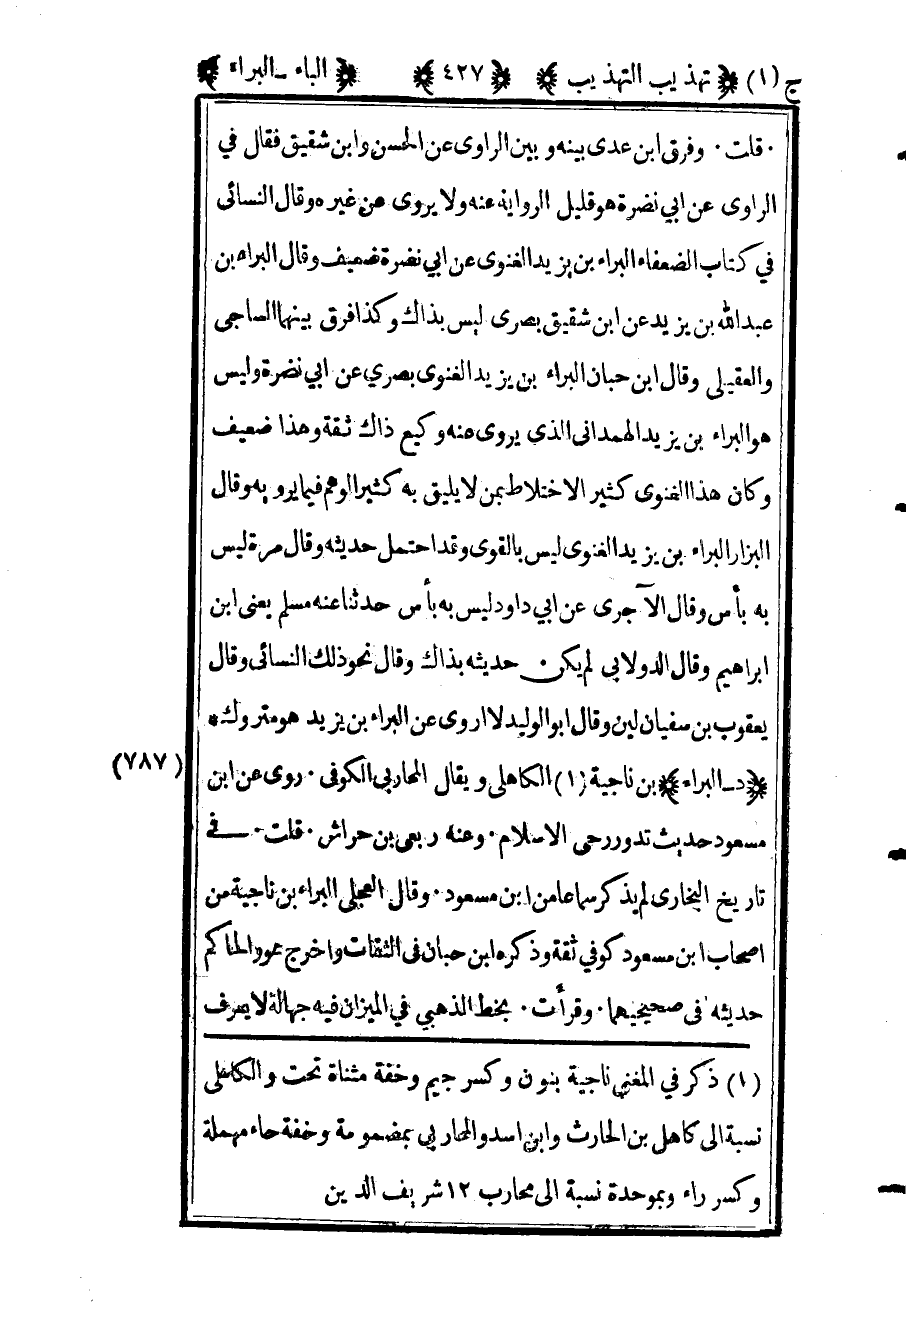 ج (١) ﴿ تهذيب التهذيب ﴾ ﴿ ٤٢٧ ﴾ ﴿ الباء ـ البراء ﴾
٠ قلت ٠ وفرق ابن عدى بينه وبين الراوى عن الحسن وابن شقيق فقال في
الراوى عن ابي نضرة هو قليل الرواية عنه ولا يروى عن غيره وقال النسائى
في كتاب الضعفاء البراء بن يزيد الغنوى عن ابي نضرة ضعيف وقال البراء بن
عبدالله بن يزيد عن ابن شقيق بصرى ليس بذاك وكذا فرق بينهما الساجى
والعقيلي وقال ابن حبان البراء بن يزيد الغنوى بصري عن ابي نضرة وليس
هو البراء بن يزيد الهمدانى الذى يروى عنه وكيع ذاك ثقة وهذا ضعيف
وكان هذا الغنوى كثير الاختلاط بمن لا يليق به كثير الوهم فيما يرويه وقال
البزار البراء بن يزيد الغنوى ليس بالقوى وقد احتمل حديثه وقال مرة ليس
به بأس وقال الآجرى عن ابي داود ليس به بأس حدثنا عنه مسلم يعنى ابن
ابراهيم وقال الدولابي لم يكن ٠ حديثه بذاك وقال نحو ذلك النسائى وقال
يعقوب بن سفيان لين وقال ابو الوليد لا اروى عن البراء بن يزيد هو متروك *
﴿ د ـ البراء ﴾ بن ناجية (١) الكاهلى ويقال المحاربى الكوفى ٠ روى عن ابن (٧٨٧)
مسعود حديث تدور رحى الاسلام ٠ وعنه ربعى بن حراش ٠ قلت ٠ فى
تاريخ البخارى لم يذكر سماعا من ابن مسعود ٠ وقال العجلى البراء بن ناجية من
اصحاب ابن مسعود كوفي ثقة وذكره ابن حبان فى الثقات واخرج هو والحاكم
حديثه فى صحيحيهما ٠ وقرأت ٠ بخط الذهبي في الميزان فيه جهالة لا يعرف
(١) ذكر في المغني ناجية بنون وكسر جيم وخفة مثناة تحت والكاهلى
نسبة الى كاهل بن الحارث وابن اسد والمحاربي بمضمومة وخفة حاء مهملة
وكسر راء وبموحدة نسبة الى محارب ١٢ شريف الدين